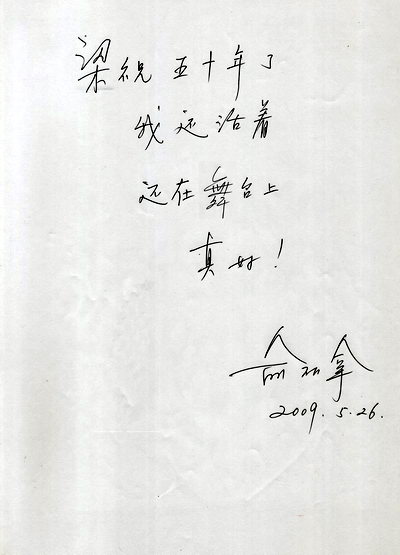 梁祝五十年了
我还活着
还在舞台上
真好！
俞丽拿
2009.5.26.